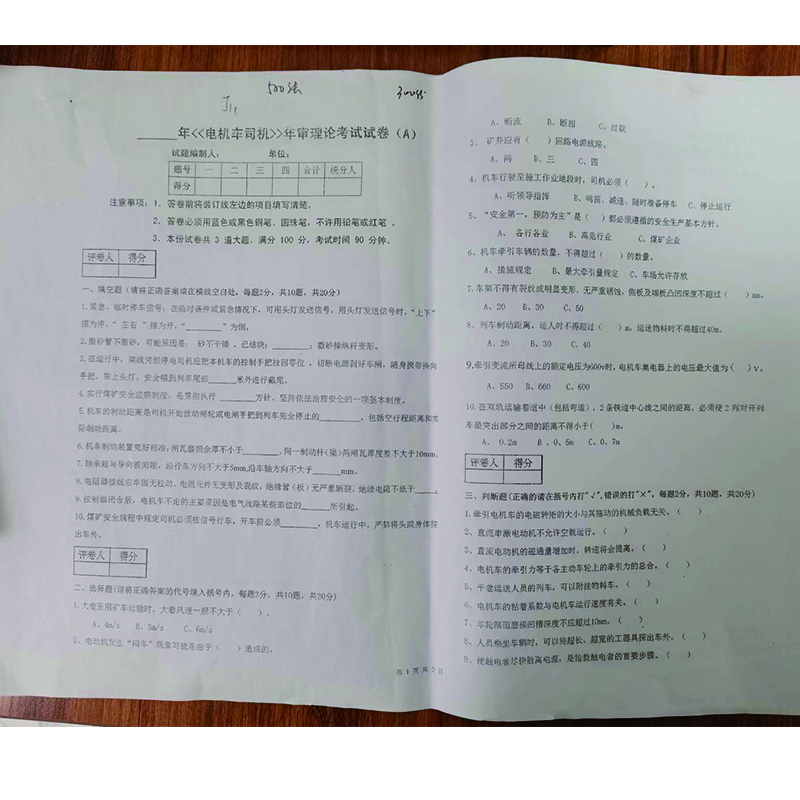 500张
300张
______年<<电机车司机>>年审理论考试试卷（A）
试题编制人：　　　　单位：
题号 一 二 三 四 合计 统分人
得分
注意事项：1. 答卷前将装订线左边的项目填写清楚。
2. 答卷必须用蓝色或黑色钢笔、圆珠笔，不许用铅笔或红笔 。
3. 本份试卷共 3 道大题，满分 100 分，考试时间 90 分钟。
评卷人 得分
一、填空题（请将正确答案填在横线空白处，每题2分，共10题，共20分）
1.紧急、临时停车信号：在临时条件或紧急情况下，可用头灯发送信号，用头灯发送信号时，“上下”
摆为停，“ 左右 ”摆为开，“________ ”为倒。
2.撒砂管不撒砂，可能原因是： 砂不干燥 ，已结块；________；撒砂操纵杆变形。
3.在运行中，架线突然停电司机应把本机车的控制手把拉回零位 ，切断电源刹好车闸，随身携带换向
手把，带上头灯、安全帽到列车尾部______米外进行截尾。
4.实行煤矿安全监察制度，是贯彻执行 ________方针、坚持依法治理安全的一项基本制度。
5.机车的制动距离是司机开始扳动闸轮或电闸手把到列车完全停止的________，包括空行程距离和实
际制动距离.
6.机车制动装置完好标准：闸瓦磨损余厚不小于________，同一制动杆(梁)两闸瓦厚度差不大于10mm。
7.轴承箱与导向板间隙，沿行车方向不大于5mm,沿车轴方向不大于______mm。
8.电阻器接线应牢固无松动，电阻元件无变形及裂纹，绝缘管（板）无严重断裂，绝缘电阻不低于____。
9.控制器闭合后，电机车不走的主要原因是电气线路某些部位的______所引起。
10.煤矿安全规程中规定司机必须按信号行车，开车前必须________，机车运行中，严禁将头或身体探
出车外。
评卷人 得分
二、选择题（请将正确答案的代号填入括号内，每题2分，共10题，共20分）
1.大巷采用矿车运输时，大巷风速一般不大于（　）。
A、4m/s　B、5m/s　C、6m/s
2、电动机发生“闷车”现象可能是由于（　）造成的。
A、断流　B、断相　C、过载
3、矿井应有（　）回路电源线路。
A、两　B、三　C、四
4、机车行驶至施工作业地段时，司机必须（　）。
A、听领导指挥　B、鸣笛、减速、随时准备停车　C、停止运行
5、“安全第一，预防为主”是（　）都必须遵循的安全生产基本方针。
A、 各行各业　B、高危行业　C、煤矿企业
6、机车牵引车辆的数量，不得超过（　）的数量。
A、措施规定　B、最大牵引量规定　C、车场允许存放
7.车架不得有裂纹或明显变形，无严重锈蚀，侧板及端板凸凹深度不超过（　）mm。
A、20　B、30　C、50
8、列车制动距离，运人时不得超过（　）m，运送物料时不得超过40m。
A、20　B、30　C、40
9.牵引变流所母线上的额定电压为600v时，电机车集电器上的电压最大值为（　）V。
A、550　B、660　C、600
10.在双轨运输巷道中（包括弯道），2条铁道中心线之间的距离，必须使 2 列对开列
车最突出部分之间的距离不得小于(　)m。
A、 0.2m　B 、0.5m　C、0.7m
评卷人 得分
三、判断题(正确的请在括号内打"√",错误的打"×"，每题2分，共10题，共20分)
1.牵引电机车的电磁转矩的大小与其拖动的机械负载无关。（　）
2、直流串激电动机不允许空载运行。（　）
3、直流电动机的磁通量增加时，转速将会提高。（　）
4、电机车的牵引力等于各主动车轮上的牵引力的总合。（　）
5、平巷运送人员的列车，可以附挂物料车。（　）
6、电机车的粘着系数与电机车运行速度有关。（　）
7、车轮踏面磨损的槽深度不应超过10mm。（　）
8、人员乘坐车辆时，可以将超长、超宽的工器具探出车外。（　）
9、使触电者尽快脱离电源，是抢救触电者的首要步骤。（　）
第 1 页 共 2 页